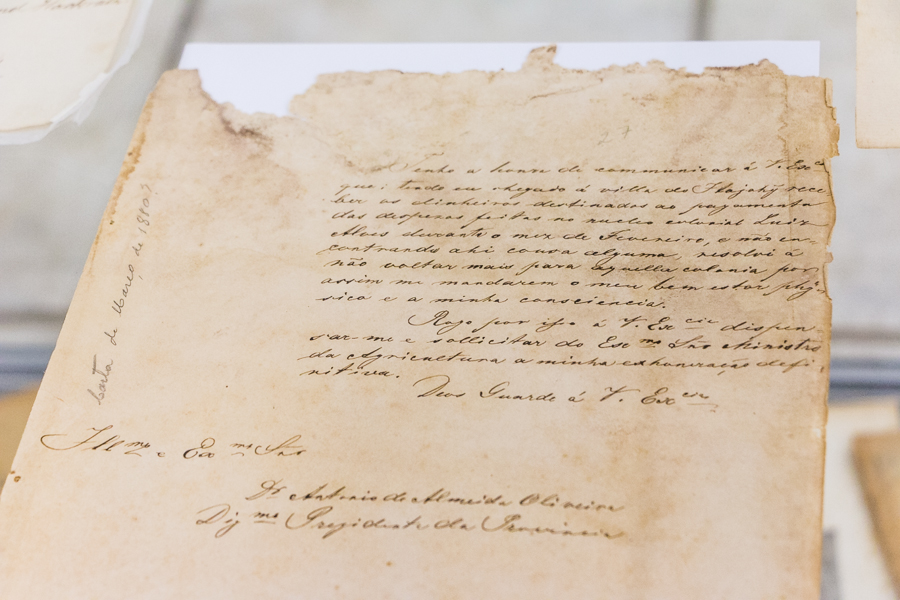 Tenho a honra de communicar á V. Exᶜⁱᵃ
que, tendo eu chegado á villa do Itajahy rece-
ber os dinheiros destinados ao pagamento
das despezas feitas no nucleo colonial Luiz
Alves durante o mez de Fevereiro, e não en-
contrando ahi cousa alguma, resolvi á
não voltar mais para aquella colonia por
assim me mandarem o meu bem estar phy-
sico e a minha consciencia.
Rogo por isso á V. Exᶜⁱᵃ dispen-
sar-me e sollicitar do Exᵐᵒ Snr Ministro
da Agricultura a minha exhoneração defi-
nitiva.
Deos Guarde á V. Exᶜⁱᵃ
Illᵐᵒ e Exᵐᵒ Snr
Dʳ Antonio de Almeida Oliveira
Digᵐᵒ Presidente da Provincia
Carta de Março de